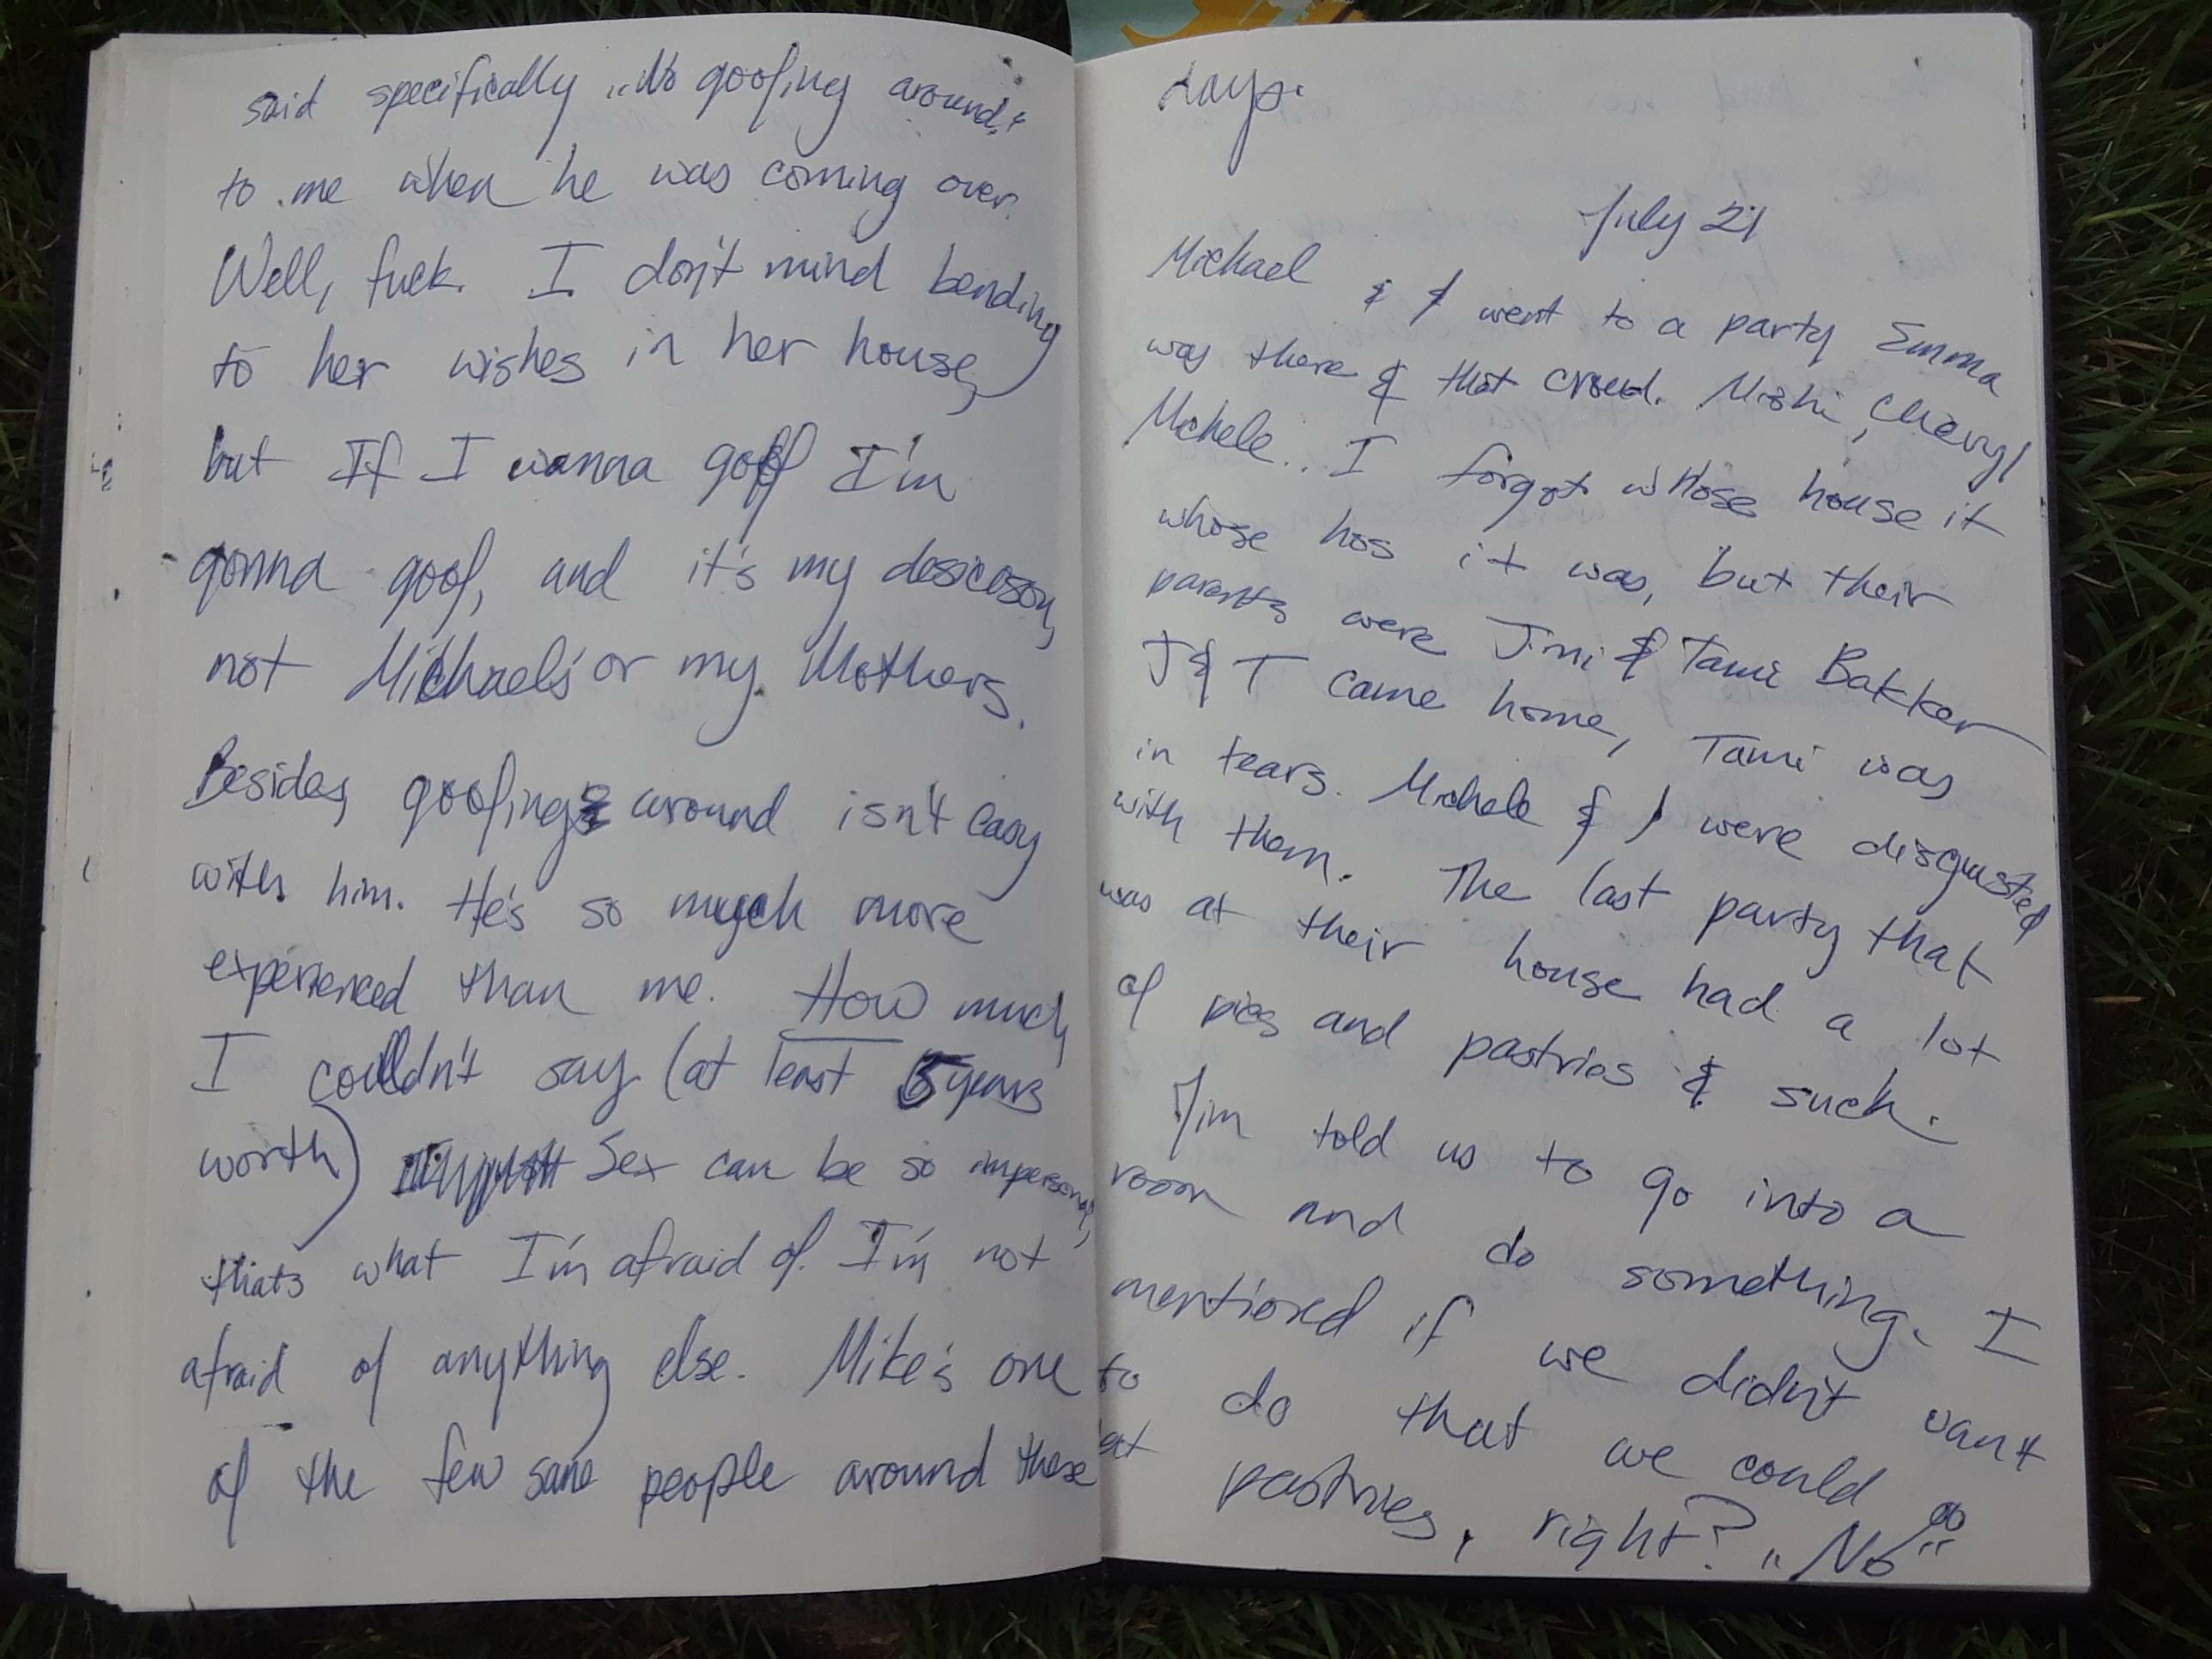 said specifically „No goofing around"
to me when he was coming over.
Well, fuck. I don't mind bending
to her wishes in her house,
but If I wanna goof I'm
gonna goof, and it's my
not Michael's or my Mothers.
Besides, goofing around isn't easy
with him. He's so much more
experienced than me. How much,
I couldn't say (at least 5 years
worth) Sex can be so impersonal,
thats what I'm afraid of. I'm not
afraid of anything else. Mike's one
of the few sane people around these
days.
July 21
Michael & I went to a party Emma
was there & that crowd. Mishi, Cheryl
Michele... I forgot whose house it
whose hos it was, but their
parents were Jmi & Tami Bakker
J & T came home, Tami was
in tears. Michele & I were disgusted
with them. The last party that
was at their house had a lot
of pies and pastries & such.
Jim told us to go into a
room and do something. I
mentioned if we didn't want
to do that we could go
eat pastries, right? „No"